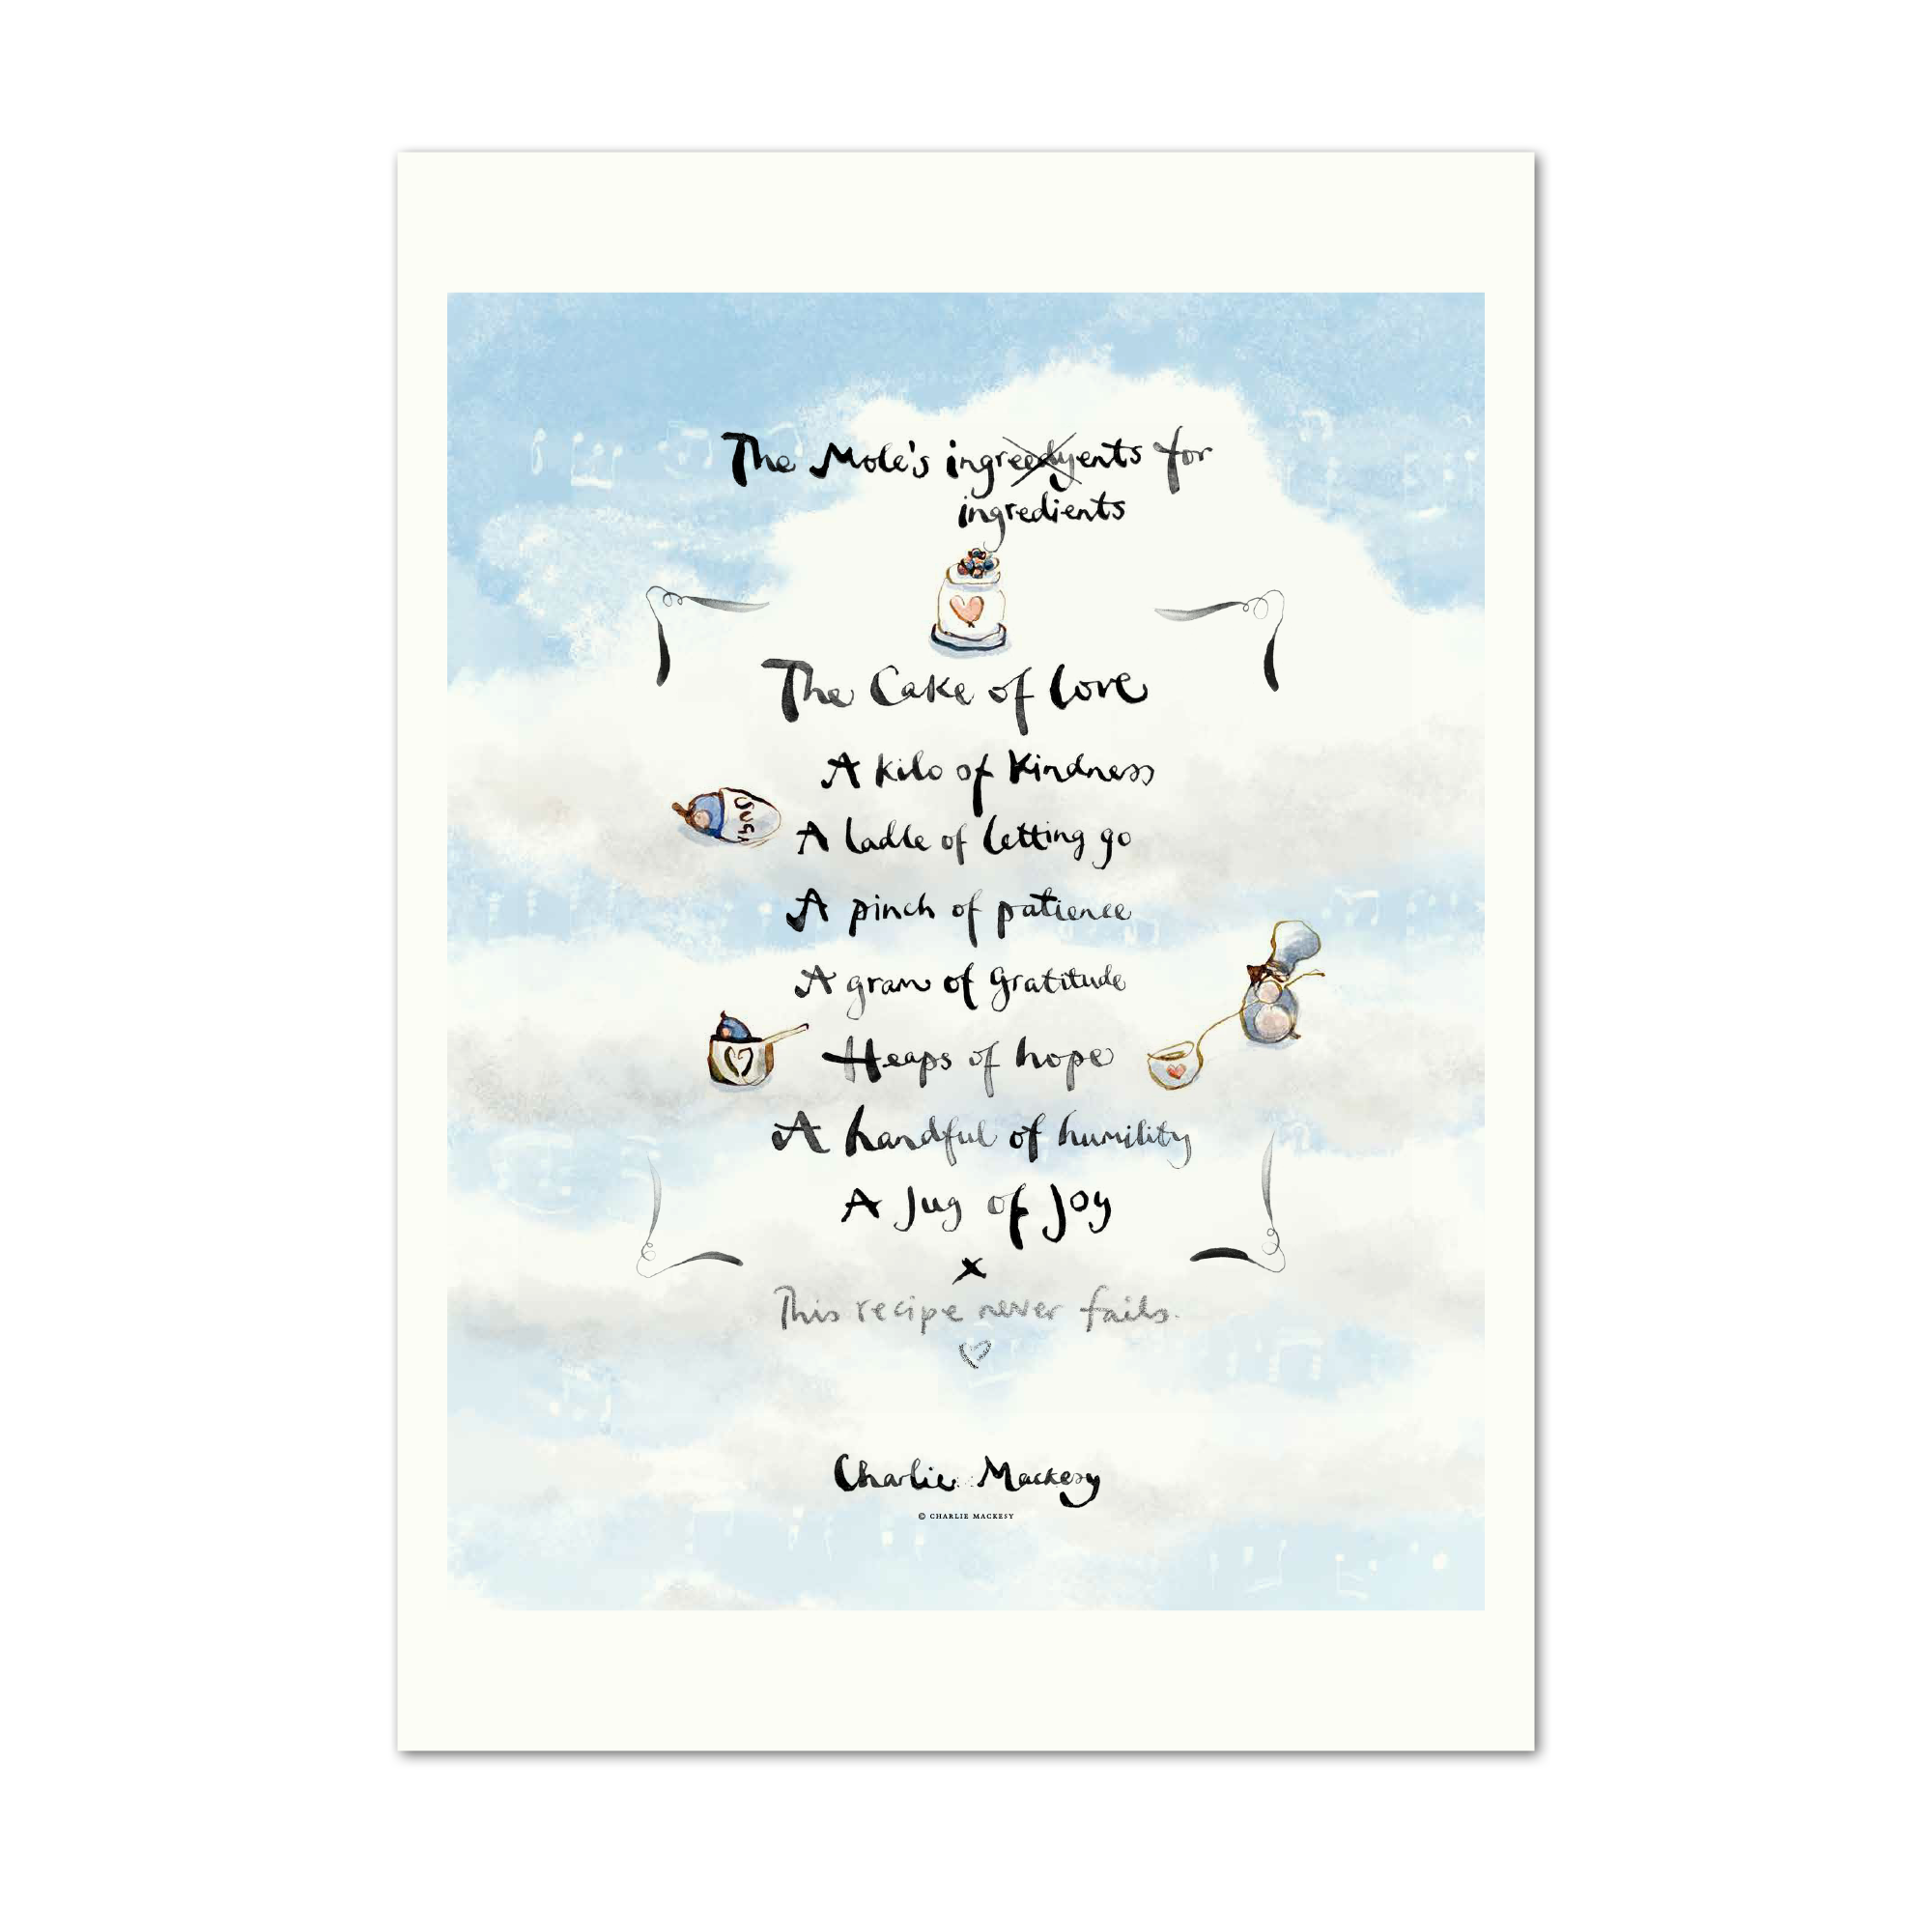 The Mole's ingreedyents for
ingredients
The Cake of love
A kilo of Kindness
Sug
A ladle of letting go
A pinch of patience
A gram of Gratitude
Heaps of hope
A handful of humility
A Jug of Joy
x
This recipe never fails.
Charlie Mackesy
© CHARLIE MACKESY